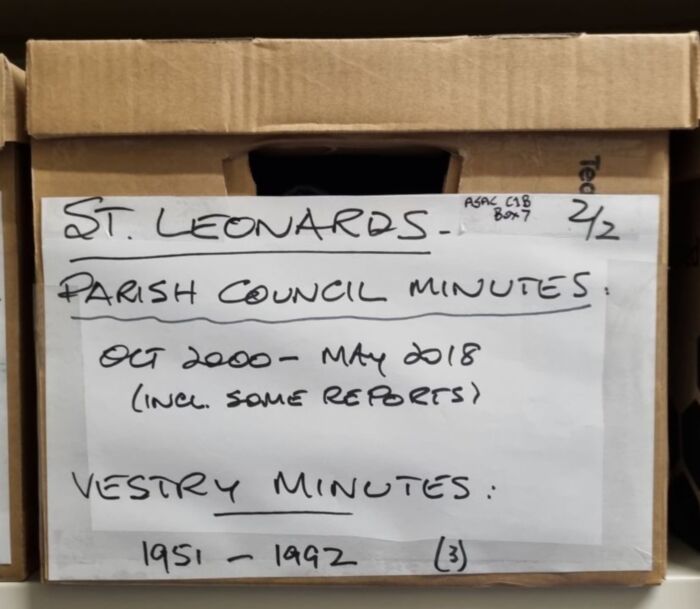 ST. LEONARDS -
ASAC C18
Box 7
2/2
PARISH COUNCIL MINUTES.
OCT 2000 - MAY 2018
(INCL. SOME REPORTS)
VESTRY MINUTES:
1951 - 1992 (3)
Tec